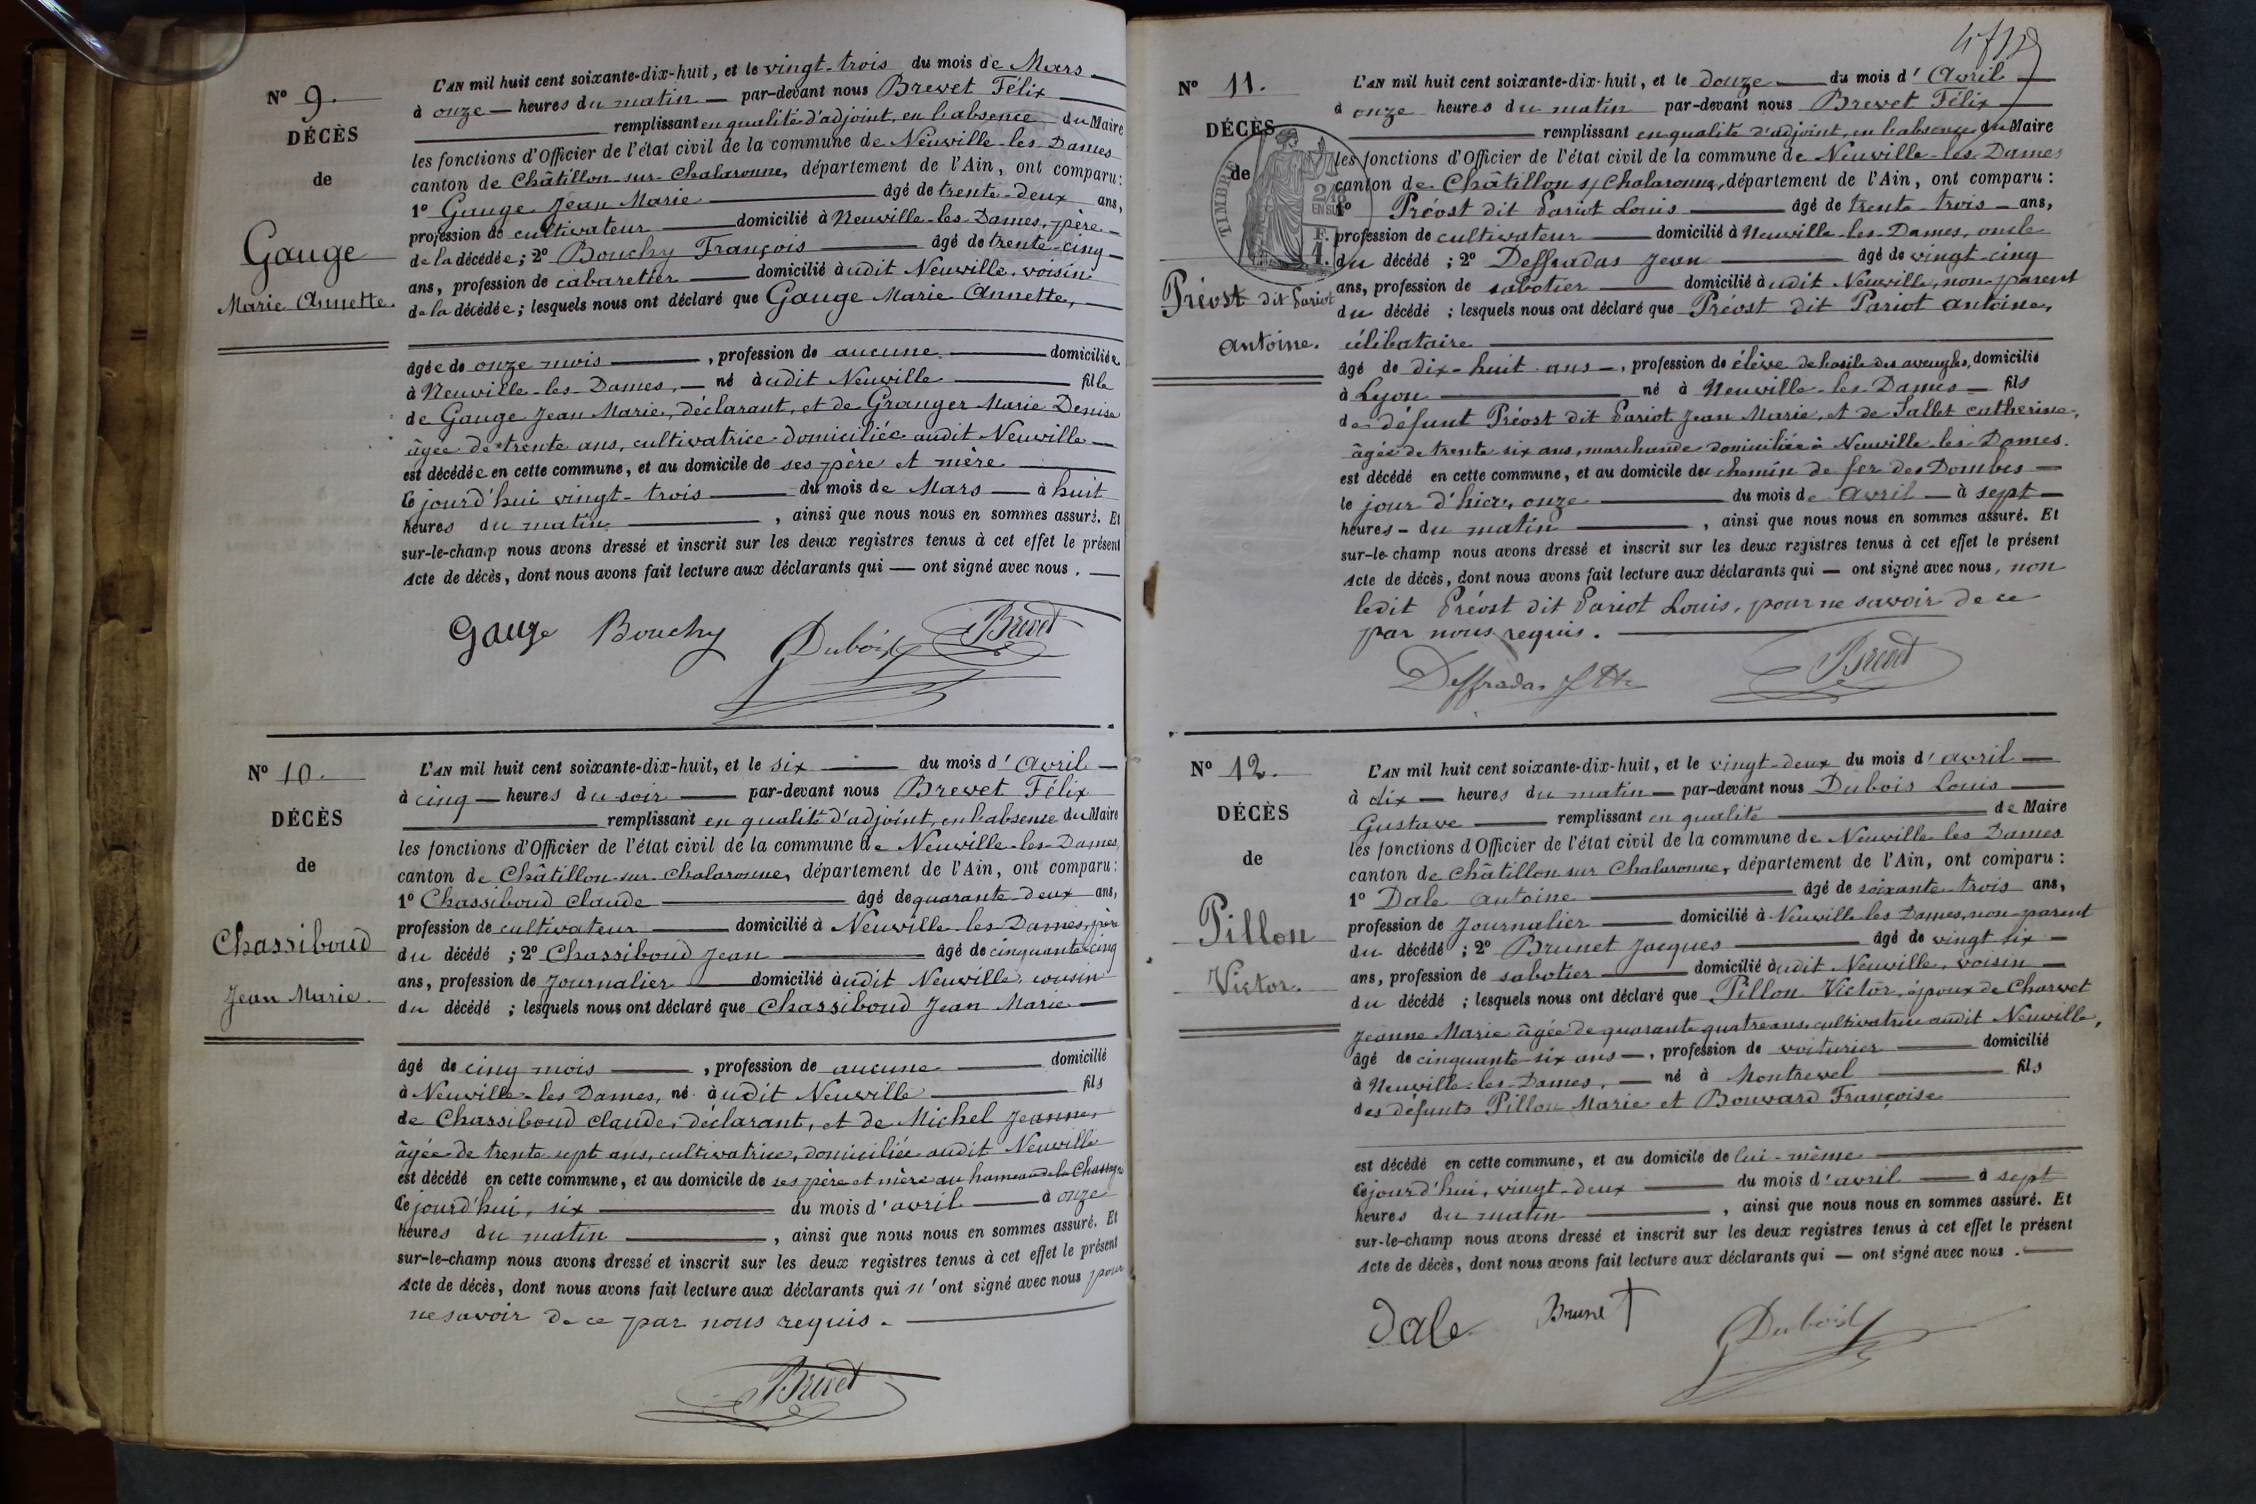 N° 9.
DÉCÈS
de
Gauge
Marie Annette.
L'AN mil huit cent soixante-dix-huit, et le vingt-trois du mois de Mars
à onze heures du matin par-devant nous Brevet Félix
remplissant en qualité d'adjoint, en l'absence du Maire
les fonctions d'Officier de l'état civil de la commune de Neuville-les-Dames
canton de Châtillon-sur-Chalaronne, département de l'Ain, ont comparu :
1° Gauge Jean Marie âgé de trente-deux ans,
profession de cultivateur domicilié à Neuville-les-Dames, père
de la décédée ; 2° Bouchy François âgé de trente-cinq
ans, profession de cabaretier domicilié audit Neuville, voisin
de la décédée ; lesquels nous ont déclaré que Gauge Marie Annette,
âgée de onze mois, profession de aucune domiciliée
à Neuville-les-Dames, né audit Neuville fille
de Gauge Jean Marie, déclarant, et de Granger Marie Denise
âgée de trente ans, cultivatrice domiciliée audit Neuville
est décédée en cette commune, et au domicile de ses père et mère
Cejourd'hui vingt-trois du mois de Mars à huit
heures du matin, ainsi que nous nous en sommes assuré. Et
sur-le-champ nous avons dressé et inscrit sur les deux registres tenus à cet effet le présent
Acte de décès, dont nous avons fait lecture aux déclarants qui — ont signé avec nous.
Gauge Bouchy Dubois Brevet
N° 10.
DÉCÈS
de
Chassiboud
Jean Marie.
L'AN mil huit cent soixante-dix-huit, et le six du mois d'Avril
à cinq heures du soir par-devant nous Brevet Félix
remplissant en qualité d'adjoint, en l'absence du Maire
les fonctions d'Officier de l'état civil de la commune de Neuville-les-Dames,
canton de Châtillon-sur-Chalaronne, département de l'Ain, ont comparu :
1° Chassiboud Claude âgé de quarante-deux ans,
profession de cultivateur domicilié à Neuville-les-Dames, père
du décédé ; 2° Chassiboud Jean âgé de cinquante-cinq
ans, profession de Journalier domicilié audit Neuville, cousin
du décédé ; lesquels nous ont déclaré que Chassiboud Jean Marie
âgé de cinq mois, profession de aucune domicilié
à Neuville-les-Dames, né audit Neuville fils
de Chassiboud Claude, déclarant, et de Michel Jeanne,
âgée de trente sept ans, cultivatrice, domiciliée audit Neuville
est décédé en cette commune, et au domicile de ses père et mère au hameau de la
Cejourd'hui, six du mois d'avril à onze
heures du matin, ainsi que nous nous en sommes assuré. Et
sur-le-champ nous avons dressé et inscrit sur les deux registres tenus à cet effet le présent
Acte de décès, dont nous avons fait lecture aux déclarants qui n'ont signé avec nous pour
ne savoir de ce par nous requis.
Brevet
N° 11.
DÉCÈS
de
TIMBRE
2/10
EN SUS
F.
1.
Préost dit Pariot
Antoine.
L'AN mil huit cent soixante-dix-huit, et le douze du mois d'Avril
à onze heures du matin par-devant nous Brevet Félix
remplissant en qualité d'adjoint, en l'absence du Maire
les fonctions d'Officier de l'état civil de la commune de Neuville-les-Dames
canton de Châtillon s/ Chalaronne, département de l'Ain, ont comparu :
1° Préost dit Pariot Louis âgé de trente-trois ans,
profession de cultivateur domicilié à Neuville-les-Dames, oncle
du décédé ; 2° Deffradas Jean âgé de vingt-cinq
ans, profession de sabotier domicilié audit Neuville, non parent
du décédé ; lesquels nous ont déclaré que Préost dit Pariot Antoine,
célibataire
âgé de dix-huit ans, profession de élève de hosile des aveugles, domicilié
à Lyon né à Neuville-les-Dames fils
de défunt Préost dit Pariot Jean Marie, et de Sallet Catherine,
âgée de trente six ans, marchande domiciliée à Neuville les Dames.
est décédé en cette commune, et au domicile du chemin de fer des Dombes
le jour d'hier, onze du mois de Avril à sept
heures du matin, ainsi que nous nous en sommes assuré. Et
sur-le-champ nous avons dressé et inscrit sur les deux registres tenus à cet effet le présent
Acte de décès, dont nous avons fait lecture aux déclarants qui — ont signé avec nous, non
ledit Préost dit Pariot Louis, pour ne savoir de ce
par nous requis.
Deffradas Brevet
N° 12.
DÉCÈS
de
Pillon
Victor.
L'AN mil huit cent soixante-dix-huit, et le vingt-deux du mois d'avril
à dix heures du matin par-devant nous Dubois Louis
Gustave remplissant en qualité de Maire
les fonctions d'Officier de l'état civil de la commune de Neuville les Dames
canton de Châtillon sur Chalaronne, département de l'Ain, ont comparu :
1° Dale Antoine âgé de soixante-trois ans,
profession de Journalier domicilié à Neuville les Dames, non parent
du décédé ; 2° Brunet Jacques âgé de vingt-six
ans, profession de sabotier domicilié audit Neuville, voisin
du décédé ; lesquels nous ont déclaré que Pillon Victor, époux de Charvet
Jeanne Marie âgée de quarante quatre ans, cultivatrice audit Neuville,
âgé de cinquante-six ans, profession de voiturier domicilié
à Neuville-les-Dames, né à Montrevel fils
des défunts Pillon Marie et Bouvard Françoise
est décédé en cette commune, et au domicile de lui-même
Cejourd'hui, vingt-deux du mois d'avril à sept
heures du matin, ainsi que nous nous en sommes assuré. Et
sur-le-champ nous avons dressé et inscrit sur les deux registres tenus à cet effet le présent
Acte de décès, dont nous avons fait lecture aux déclarants qui — ont signé avec nous.
Dale Brunet Dubois